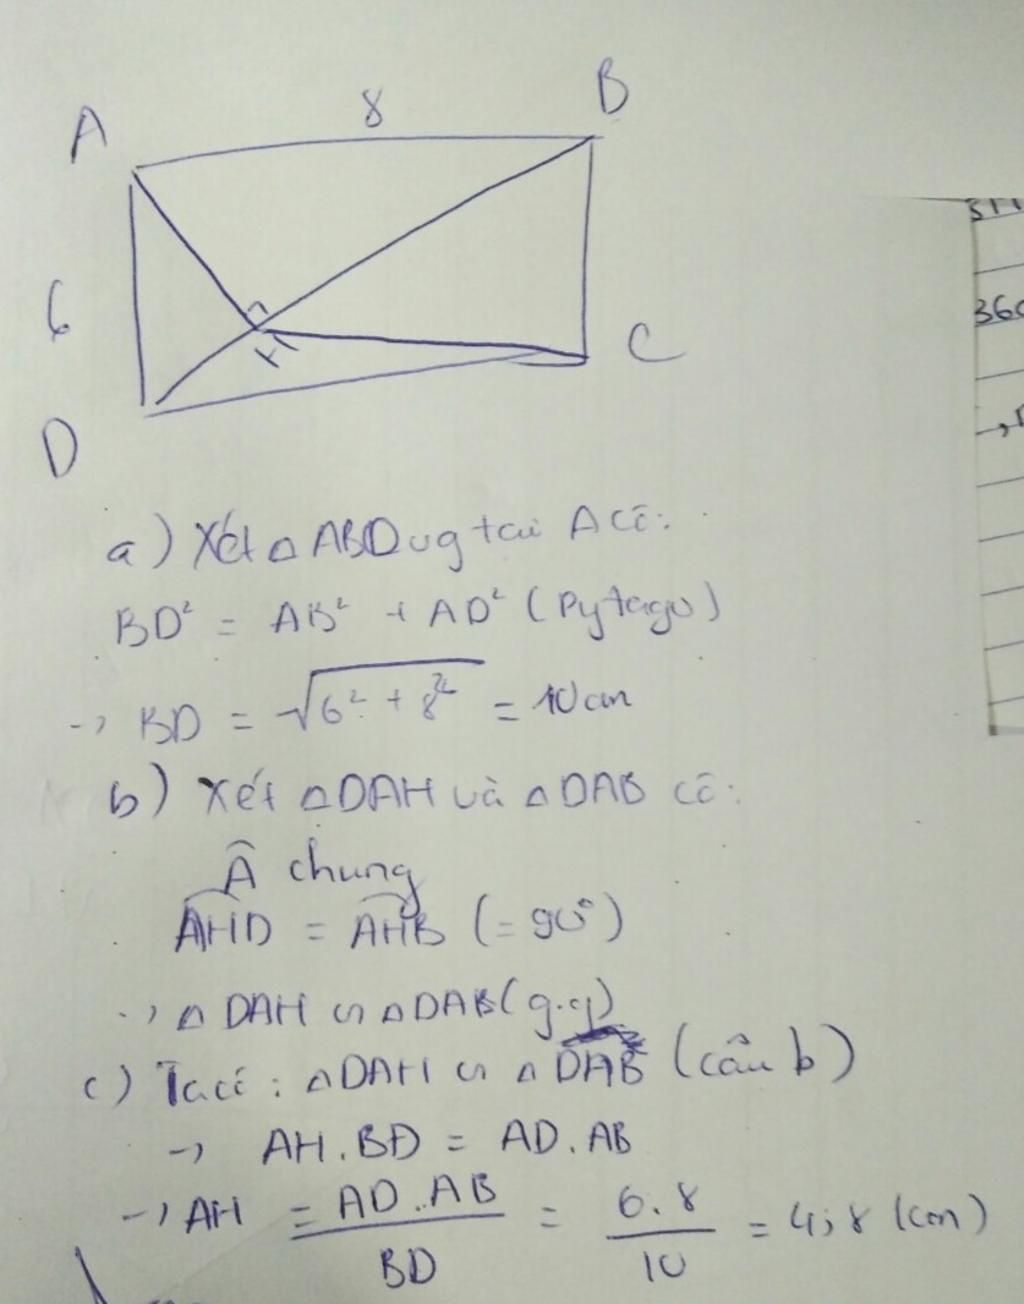 A 8 B
6
H
C
D
a) Xét △ABD vg tại A có:
BD² = AB² + AD² (Pytago)
→ BD = √6² + 8² = 10cm
b) Xét △DAH và △DAB có:
Â chung
AHD = AHB (= 90°)
→ △ DAH ∽ △DAB (g.g)
c) Ta có: △DAH ∽ △ DAB (câu b)
→ AH. BD = AD. AB
→ AH = AD. AB / BD = 6.8 / 10 = 4,8 (cm)
360